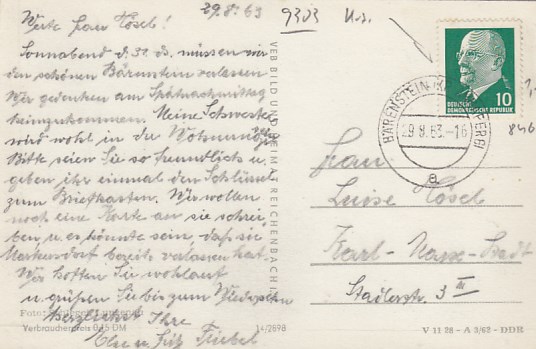 29.8.63
Werte Frau Hösel!
Sonnabend d. 31. ds. müssen wir
den schönen Bärenstein verlassen.
Wir gedenken am Spätnachmittag
heimzukommen. Meine Schwester
wird wohl in der Wohnung sein.
Bitte seien Sie so freundlich u.
geben ihr einmal den Schlüssel
zum Briefkasten. Wir wollen
noch eine Karte an sie schrei-
ben u. es könnte sein, daß sie
Markersdorf bereits verlassen hat.
Wir hoffen Sie wohlauf
u. grüßen Sie bis zum Wiedersehn
herzlichst Ihre
Else u. Fritz Fiebel
Foto:
Verbraucherpreis 0,15 DM
14/2698
VEB BILD UND HEIMAT REICHENBACH I. V.
9303
DEUTSCHE
DEMOKRATISCHE REPUBLIK
10
BÄRENSTEIN
29.8.63-16
a
846
Frau
Luise Hösel
Karl-Marx-Stadt
Stadlerstr. 3 III
V 11 28 - A 3/62 - DDR